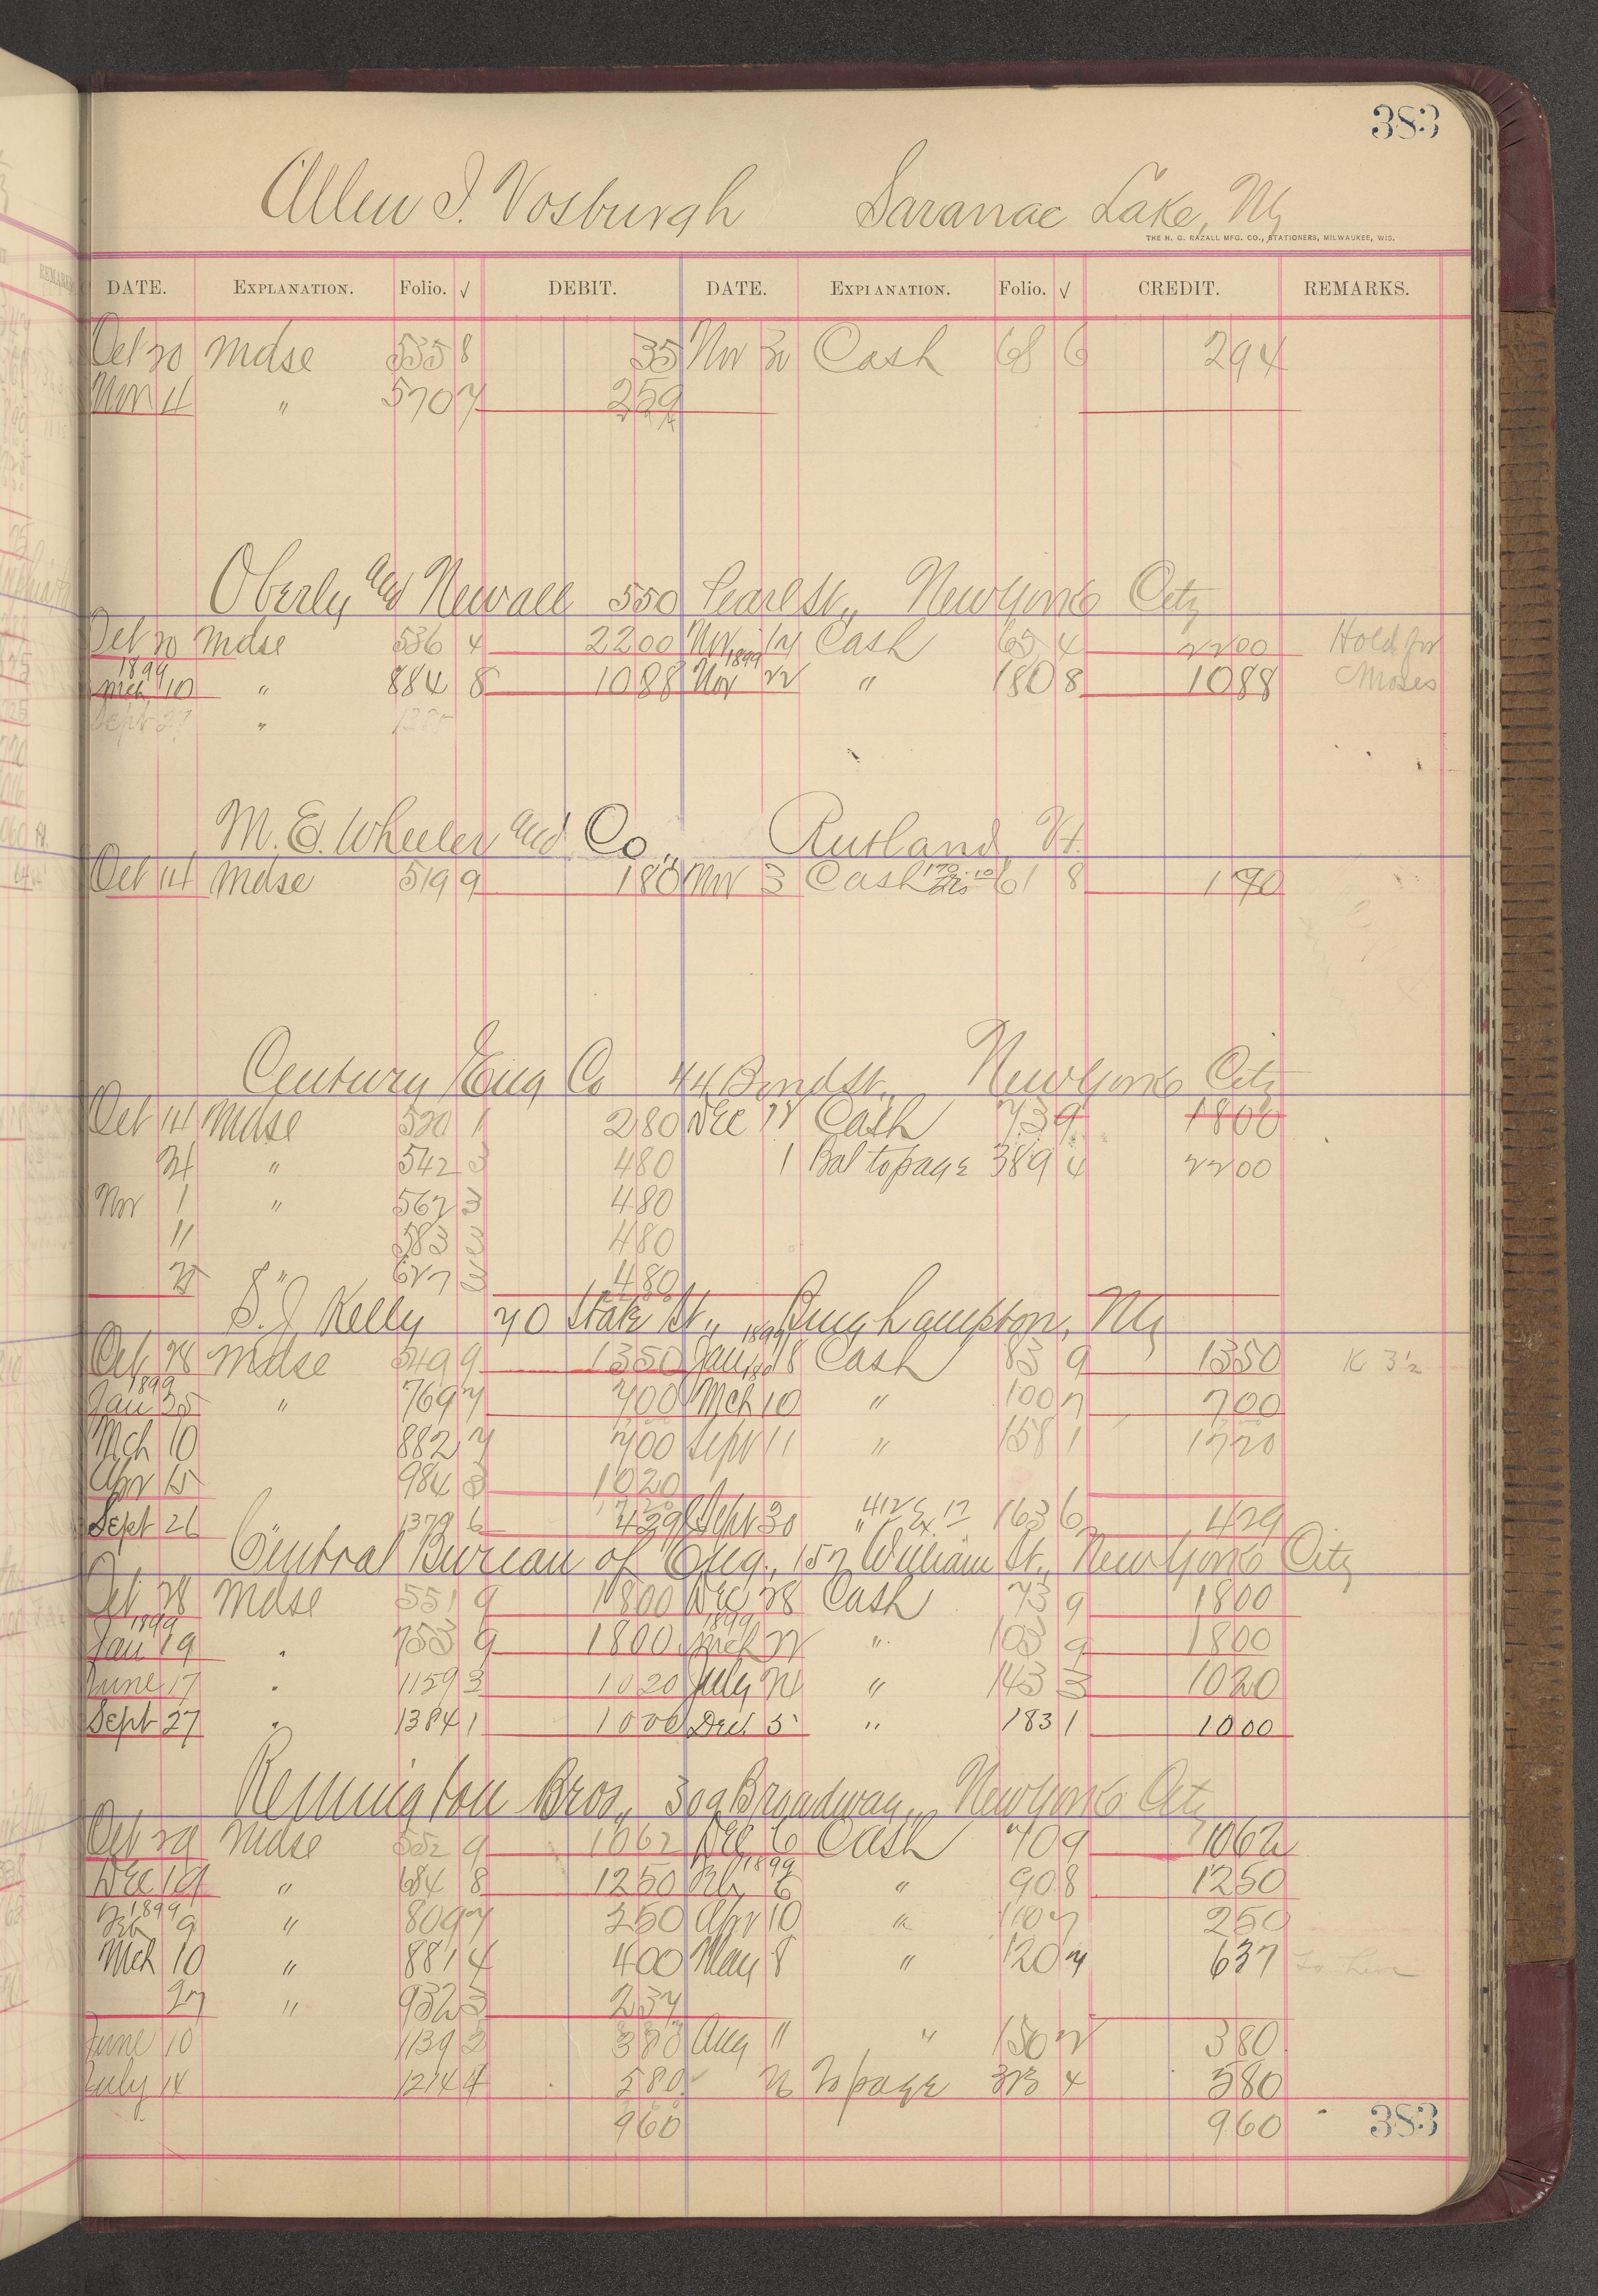 383
Allen I. Vosburgh Saranac Lake, NY
THE H. G. RAZALL MFG. CO., STATIONERS, MILWAUKEE, WIS.
DATE. EXPLANATION. Folio. √ DEBIT. DATE. EXPLANATION. Folio. √ CREDIT. REMARKS.
Oct 20 Mdse 535 8 35 Nov 30 Cash 68 6 294
Nov 4 " 570 7 259
294
Oberly and Newall 550 Pearl St., New York City
Oct 20 Mdse 536 4 2200 Nov 17 Cash 65 4 2200 Hold for
1899 1899
Mch 10 " 884 8 1088 Nov 22 " 180 8 1088 Moses
Sept 27 "
M. E. Wheeler and Co., Rutland, Vt.
Oct 14 Mdse 519 9 180 Nov 3 Cash 61 8 1 80
Century Eng Co 44 Bond St., New York City
Oct 14 Mdse 520 1 280 Dec 28 Cash 73 9 1800
24 " 542 3 480 1 Bal to page 389 4 2200
Nov 1 " 562 3 480
11 583 3 480
25 " 627 3 480
S. J. Kelly 70 State St., Binghampton, NY
1899
Oct 28 Mdse 549 9 1350 Jan 18 Cash 83 9 1350 K 3½
1899
Jan 25 " 769 7 700 Mch 10 " 100 7 700
Mch 10 882 7 700 Sept 11 " 158 1 1720
Apr 15 984 3 1020
1720
Sept 26 1379 6 429 Sept 30 " 412 Ex. 17 163 6 429
Central Bureau of Eng., 157 William St., New York City
Oct 28 Mdse 551 9 1800 Dec 28 Cash 73 9 1800
1899 1899
Jan 19 " 753 9 1800 Mch 22 " 103 9 1800
June 17 " 1159 3 1020 July " 143 3 1020
Sept 27 " 1384 1 1000 Dec. 5 " 183 1 1000
Remington Bros., 309 Broadway, New York City
Oct 29 Mdse 552 9 1062 Dec 6 Cash 70 9 1062
1899
Dec 19 " 684 8 1250 Feb 6 " 90 8 1250
1899
Feb 9 " 809 7 250 Apr 10 " 110 7 250
Mch 10 " 881 4 400 May 8 " 120 7 637 To here
27 " 932 3 237
June 10 1139 2 380 Aug 11 " 150 2 380
July 14 1214 4 580 To page 313 4 580
960 960
383